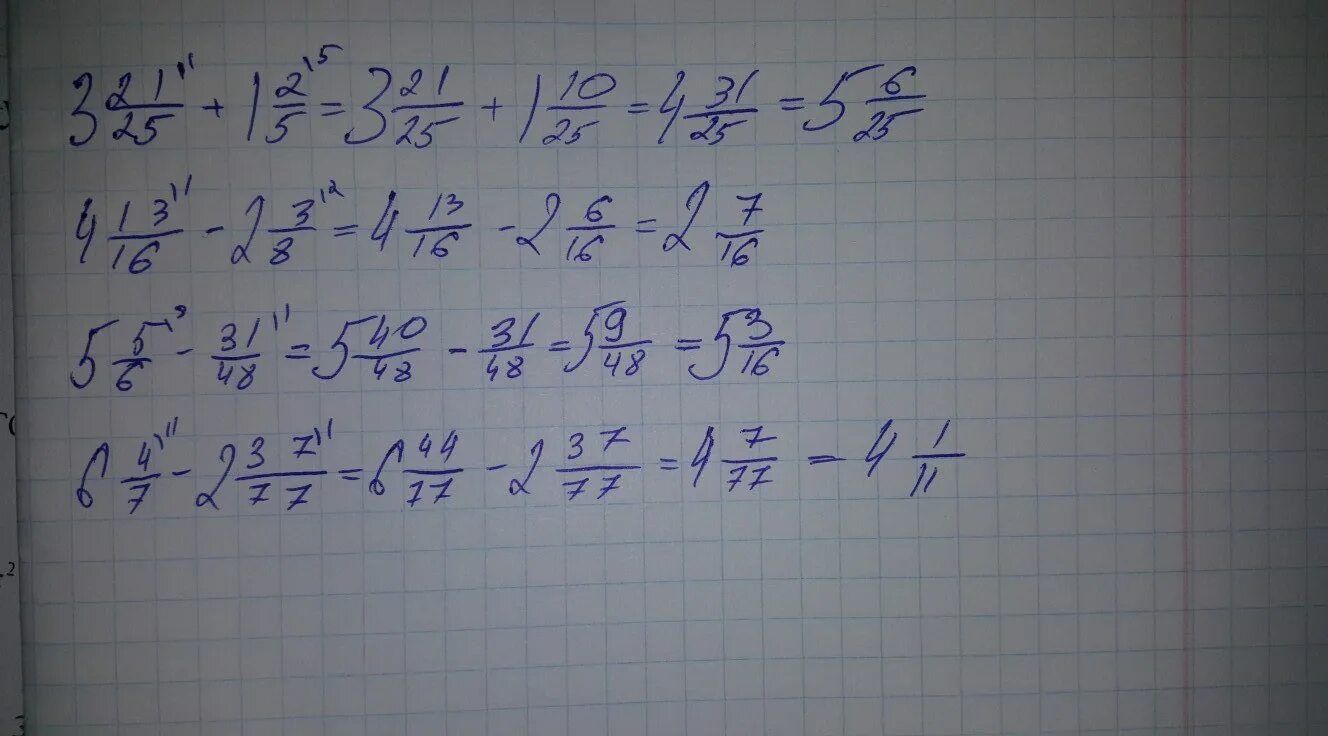 3 21/25 \1 + 1 2/5 \5 = 3 21/25 + 1 10/25 = 4 31/25 = 5 6/25
4 13/16 \1 - 2 3/8 \2 = 4 13/16 - 2 6/16 = 2 7/16
5 5/6 - 31/48 \1 = 5 40/48 - 31/48 = 5 9/48 = 5 3/16
6 4/7 \11 - 2 37/77 \1 = 6 44/77 - 2 37/77 = 4 7/77 = 4 1/11